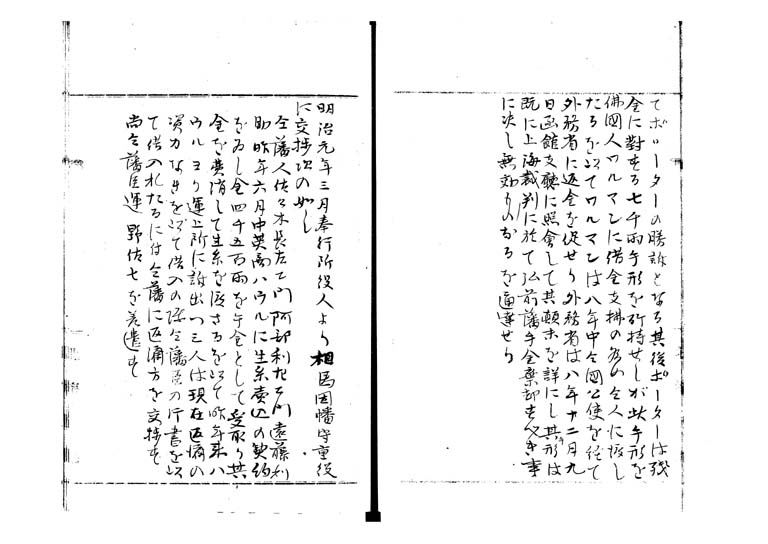 てポーターの勝訴となる其後ポーターは残
金に対する七千両手形を所持せしが此手形を
佛國人ウルマンに借金支拂の為め仝人に渡し
たるを以てウルマンは八年中仝國公使を経て
外務省に返金を促せり外務省は八年十二月九
日函館支廳に照會して其顛末を詳にし其手形は
既に上海裁判に於て弘前藩手全棄却すべき事
に決し無効りのなるを通達せり
明治元年三月奉行所役人より相馬因幡守重役
に交渉次の如し
仝藩人佐々木長左エ門阿部利左エ門遠藤利
助昨年六月中英商ハウルに生糸賣込の契約
をゐし金四千五百両を手金として受取り其
金を費消して生糸を渡さるを以て昨年来ハ
ウルヨリ運上所に訴出つ三人は現在返済の
資力なきを以て借入の際仝藩の庁書を以
て借入れたるに付仝藩に返済方を交渉す
尚仝藩医運野佐七を差遣す